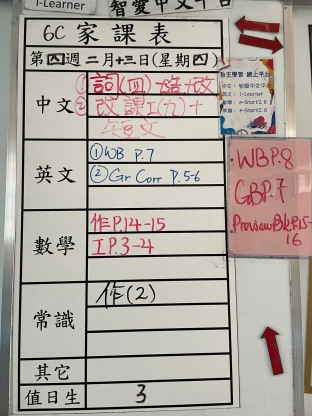 i-Learner
智愛中文平台
6C 家課表
第四週二月十三日(星期四)
中文
①詞(四)
②改課工(九)+
英文
①WB P.7
②Gr Corr P.5-6
數學
作P.14-15
工P.3-4
常識
作(2)
其它
值日生
3
自主學習 網上平台
中文: 智愛中文平台
英文: i-Learner
數學: e-Smart2.0
常識: e-Smart2.0
WB P.8
GB P.7
Preview Bk P.15-
16